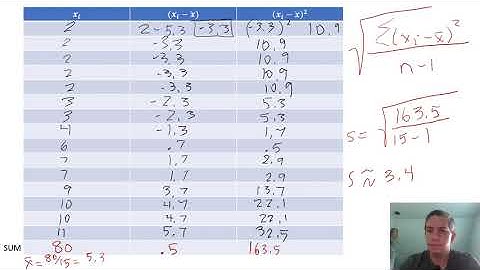 xᵢ (xᵢ − x̄) (xᵢ − x̄)²
2 2 - 5.3 -3.3 (-3.3)² 10.9
2 -3.3 10.9
2 -3.3 10.9
2 -3.3 10.9
2 -3.3 10.9
3 -2.3 5.3
3 -2.3 5.3
4 -1.3 1.7
6 .7 .5
7 1.7 2.9
7 1.7 2.9
9 3.7 13.7
10 4.7 22.1
10 4.7 22.1
11 5.7 32.5
SUM 80 .5 163.5
x̄ = 80/15 = 5.3
√(Σ(xᵢ - x̄)² / n-1)
s = √(163.5 / 15-1)
s ≈ 3.4